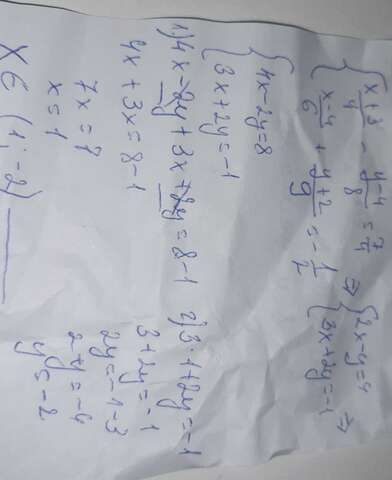 { (x+3)/4 - (y-4)/8 = 7/4
{ (x-4)/6 + (y+2)/9 = -1/2
⇒ { 2x-y=4
{ 3x+2y=-1 ⇒
{ 4x-2y=8
{ 3x+2y=-1
1) 4x-2y+3x+2y=8-1
4x+3x=8-1
7x=7
x=1
2) 3·1+2y=-1
3+2y=-1
2y=-1-3
2y=-4
y=-2
X є (1;-2)